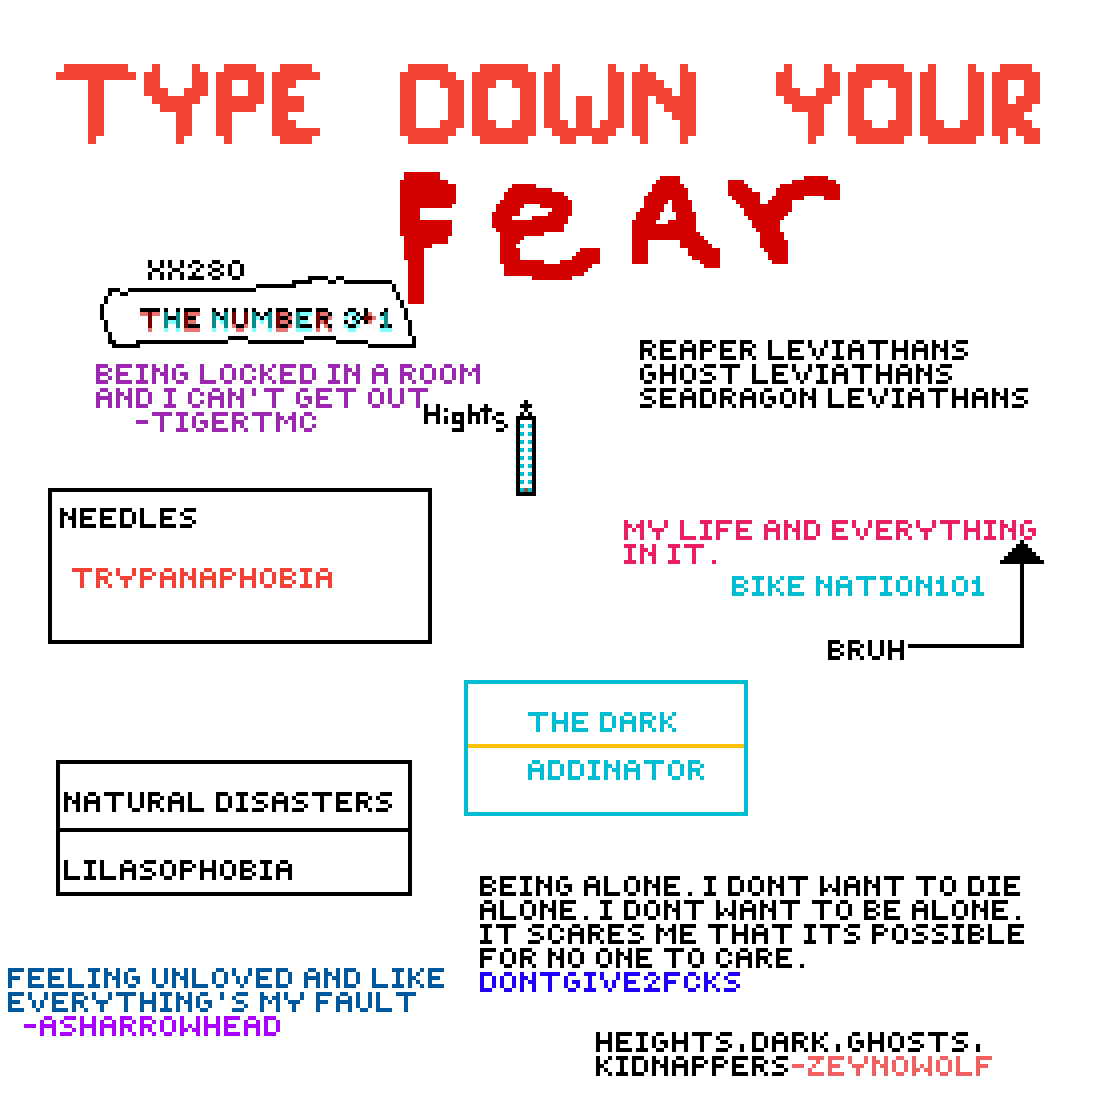 TYPE DOWN YOUR
FeAr
XX280
THE NUMBER 3+1
BEING LOCKED IN A ROOM
AND I CAN'T GET OUT
-TIGERTMC
Hights
REAPER LEVIATHANS
GHOST LEVIATHANS
SEADRAGON LEVIATHANS
NEEDLES
TRYPANAPHOBIA
MY LIFE AND EVERYTHING
IN IT.
BIKE NATION101
BRUH
THE DARK
ADDINATOR
NATURAL DISASTERS
LILASOPHOBIA
BEING ALONE. I DONT WANT TO DIE
ALONE. I DONT WANT TO BE ALONE.
IT SCARES ME THAT ITS POSSIBLE
FOR NO ONE TO CARE.
DONTGIVE2FCKS
FEELING UNLOVED AND LIKE
EVERYTHING'S MY FAULT
-ASHARROWHEAD
HEIGHTS.DARK.GHOSTS.
KIDNAPPERS-ZEYNOWOLF